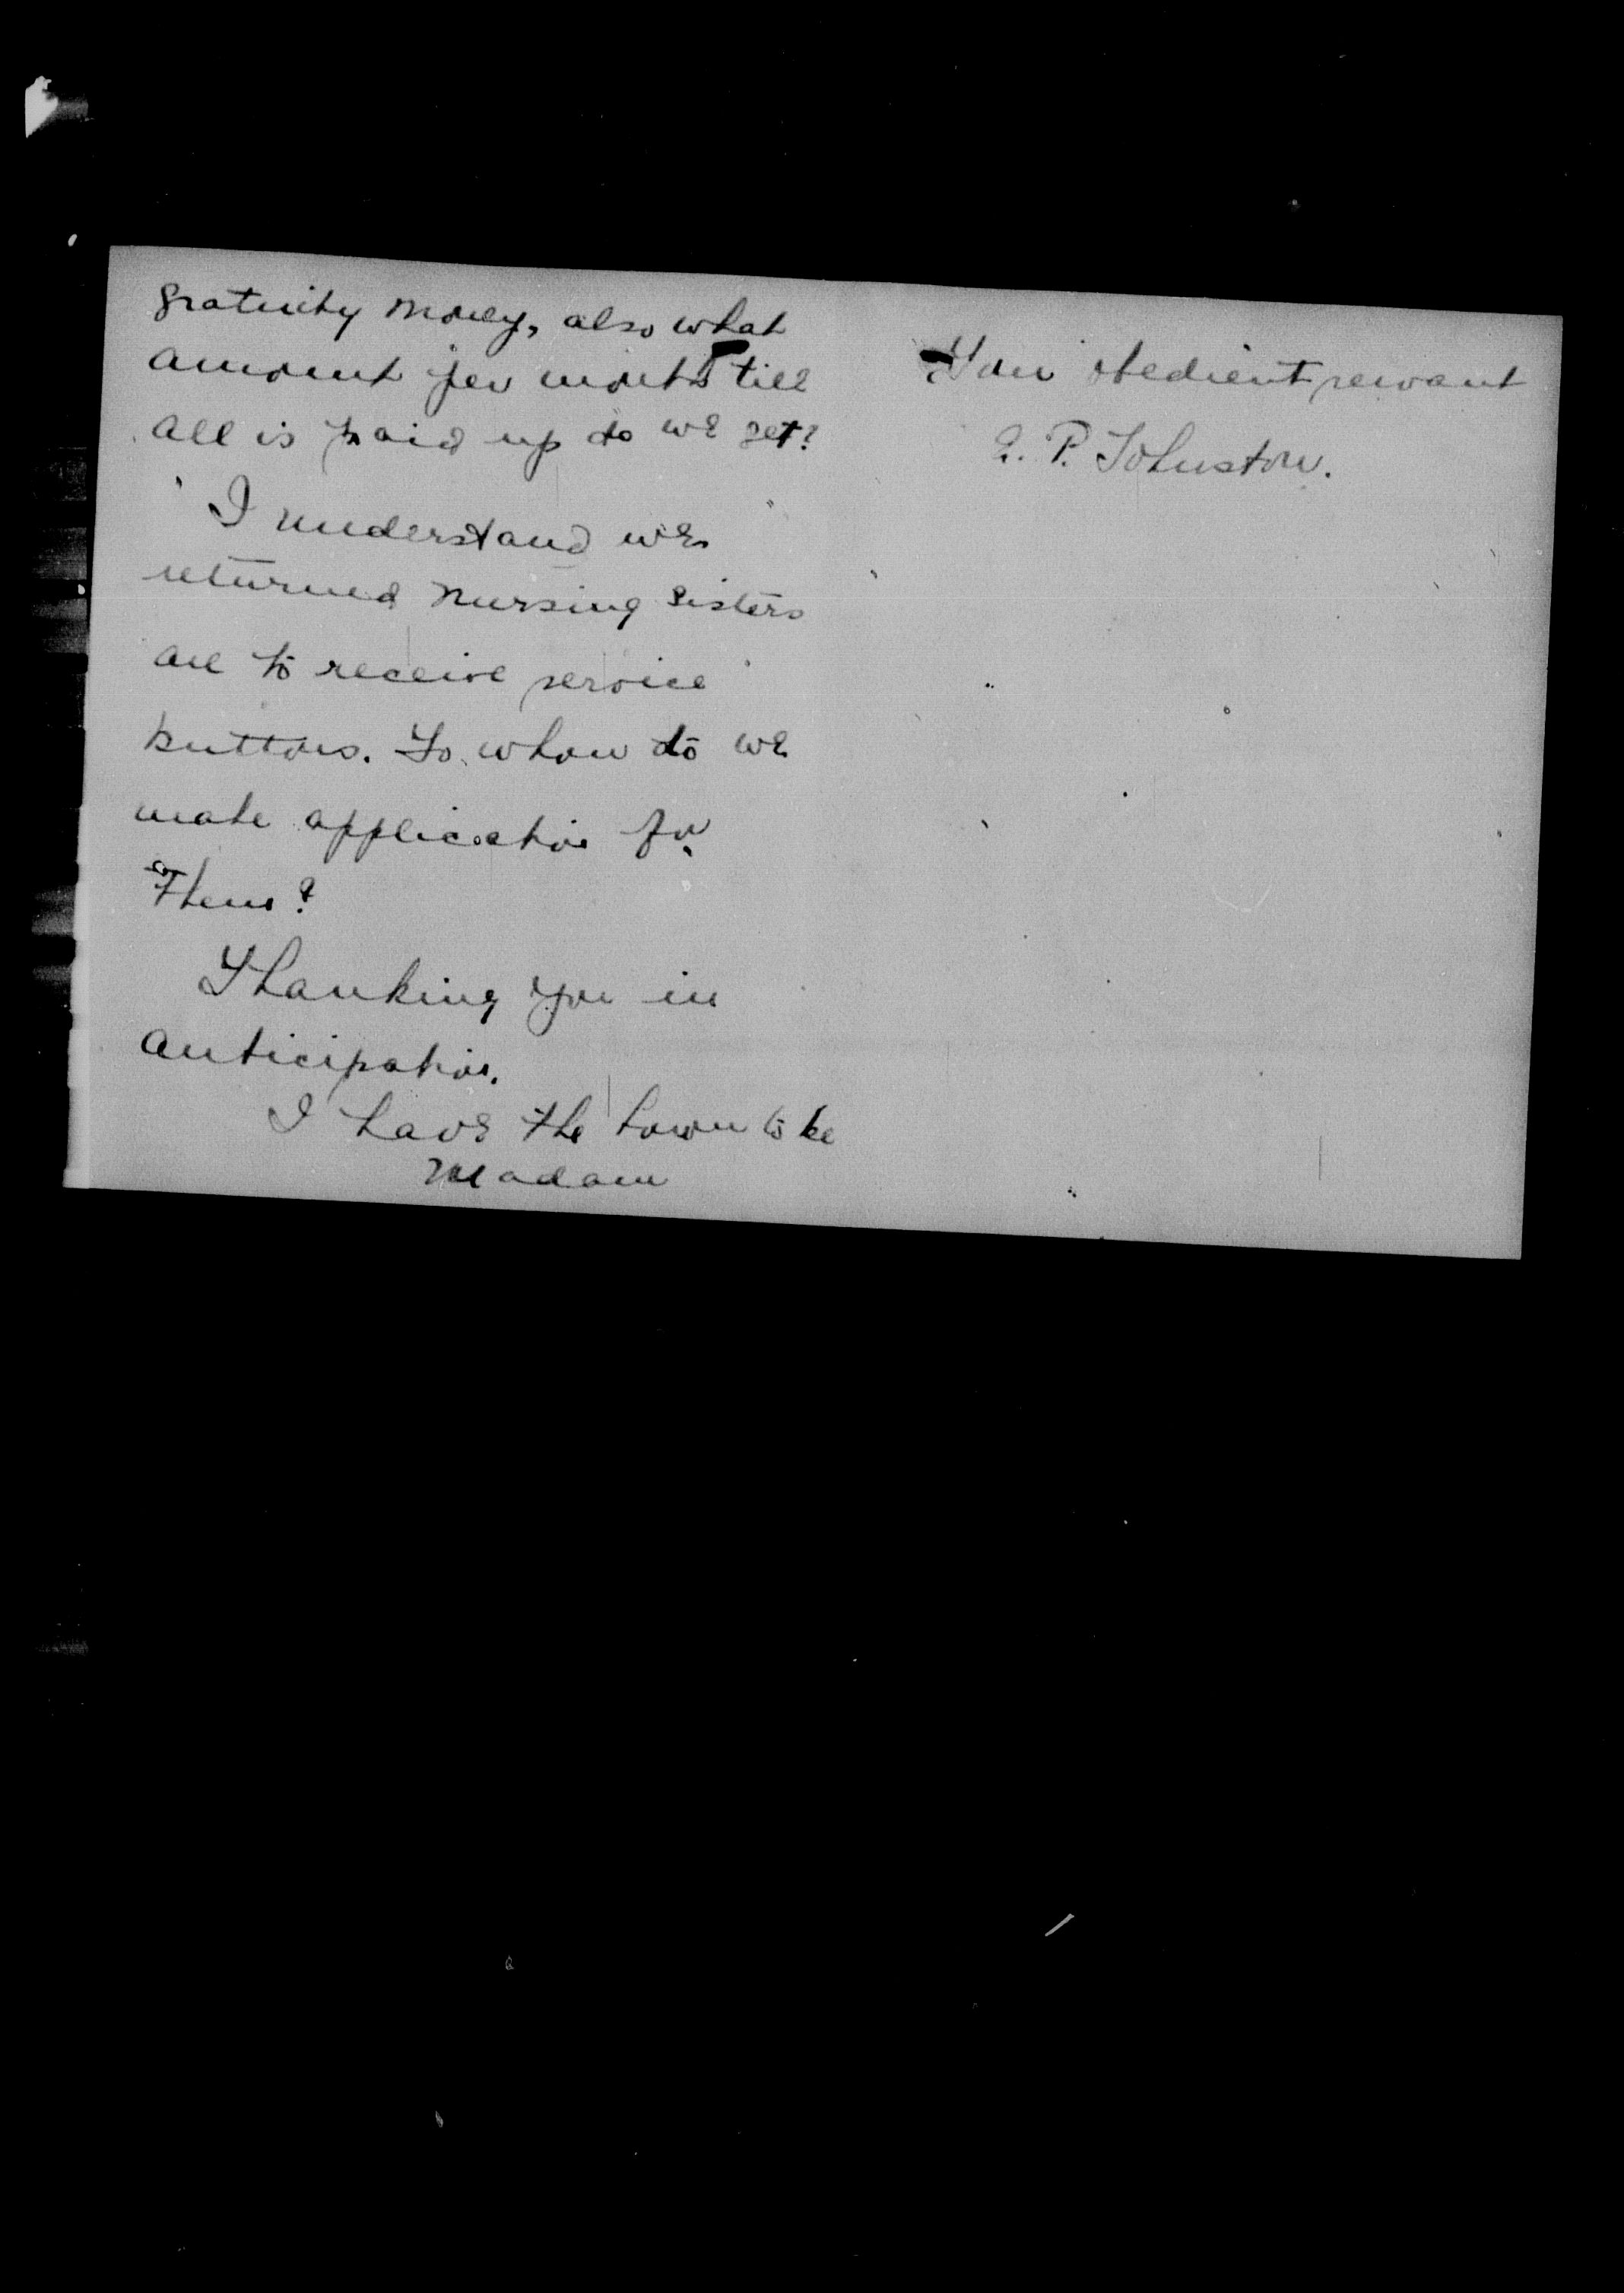 gratuity money, also what
amount per month till
all is paid up do we get?
I understand we
returned nursing sisters
are to receive service
buttons. To whom do we
make application for
them?
Thanking you in
anticipation.
I have the honour to be
Madam
Your obedient servant
P. Johnston.